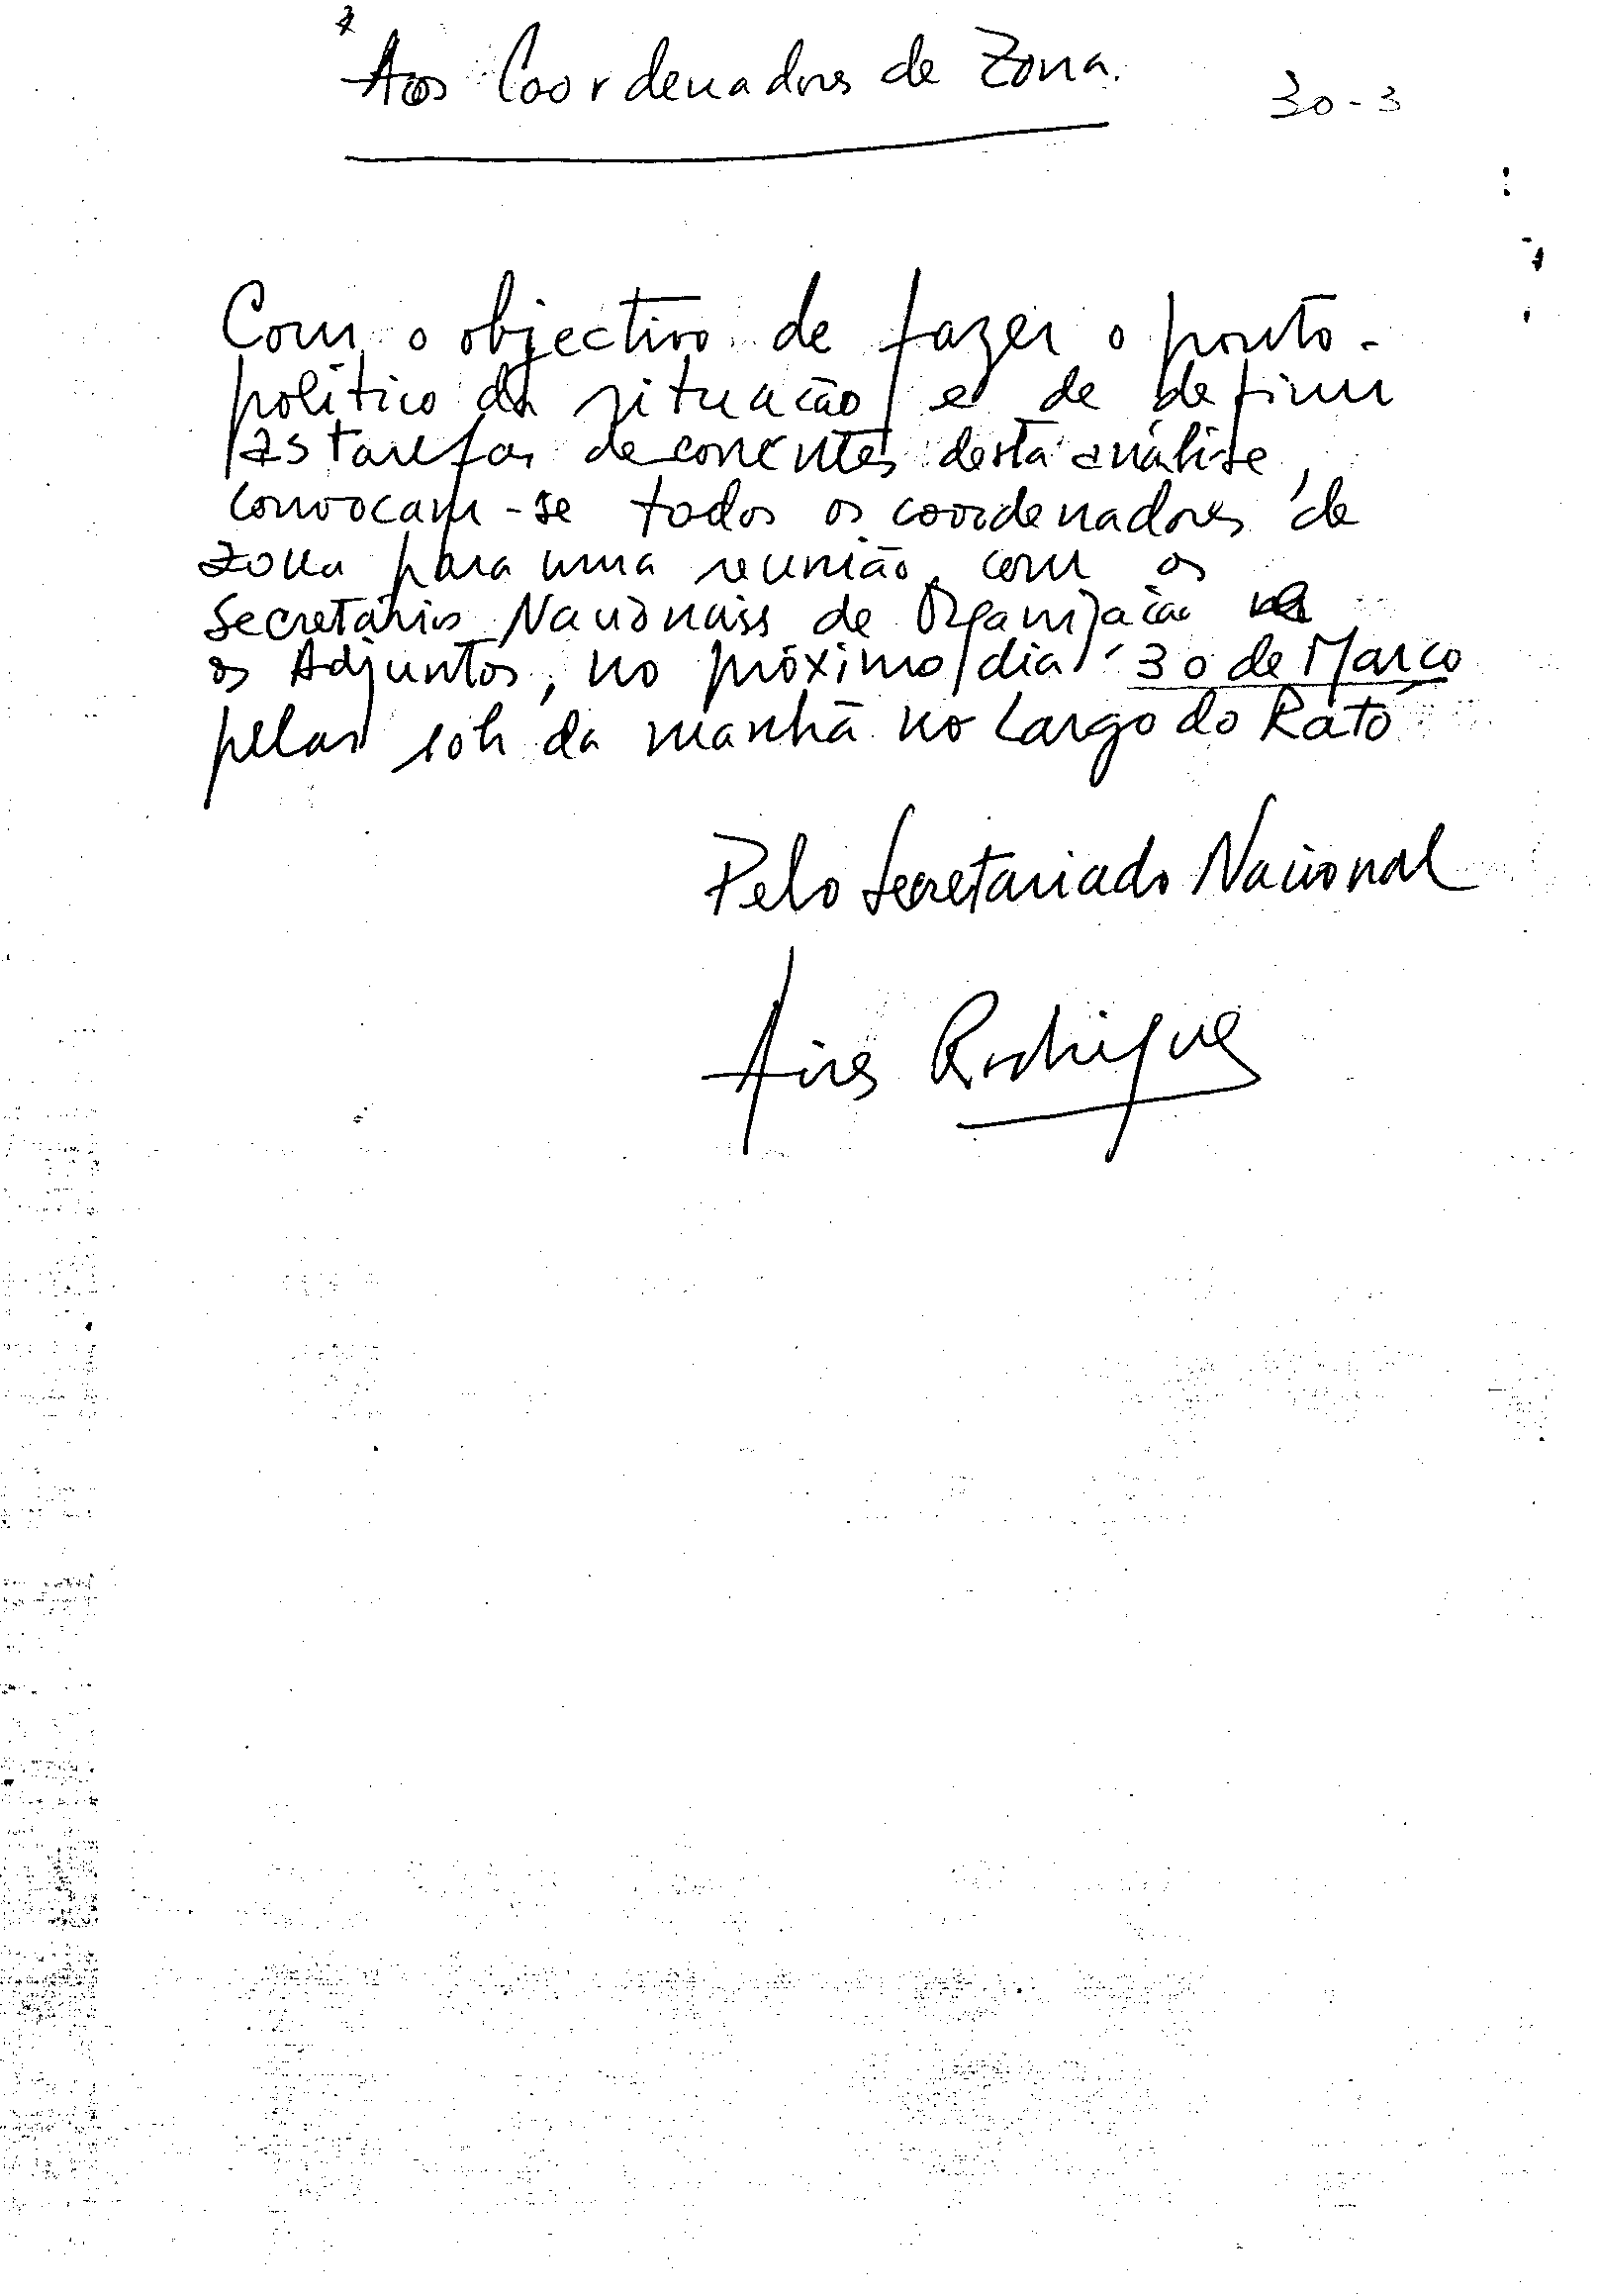 Aos Coordenadores de Zona.
30-3
Com o objectivo de fazer o ponto
político da situação e de definir
as tarefas decorrentes desta análise,
convocam-se todos os coordenadores de
zona para uma reunião com os
Secretários Nacionais de Organização
os Adjuntos, no próximo dia 30 de Março
pelas 10h da manhã no Largo do Rato
Pelo Secretariado Nacional
Aires Rodrigues